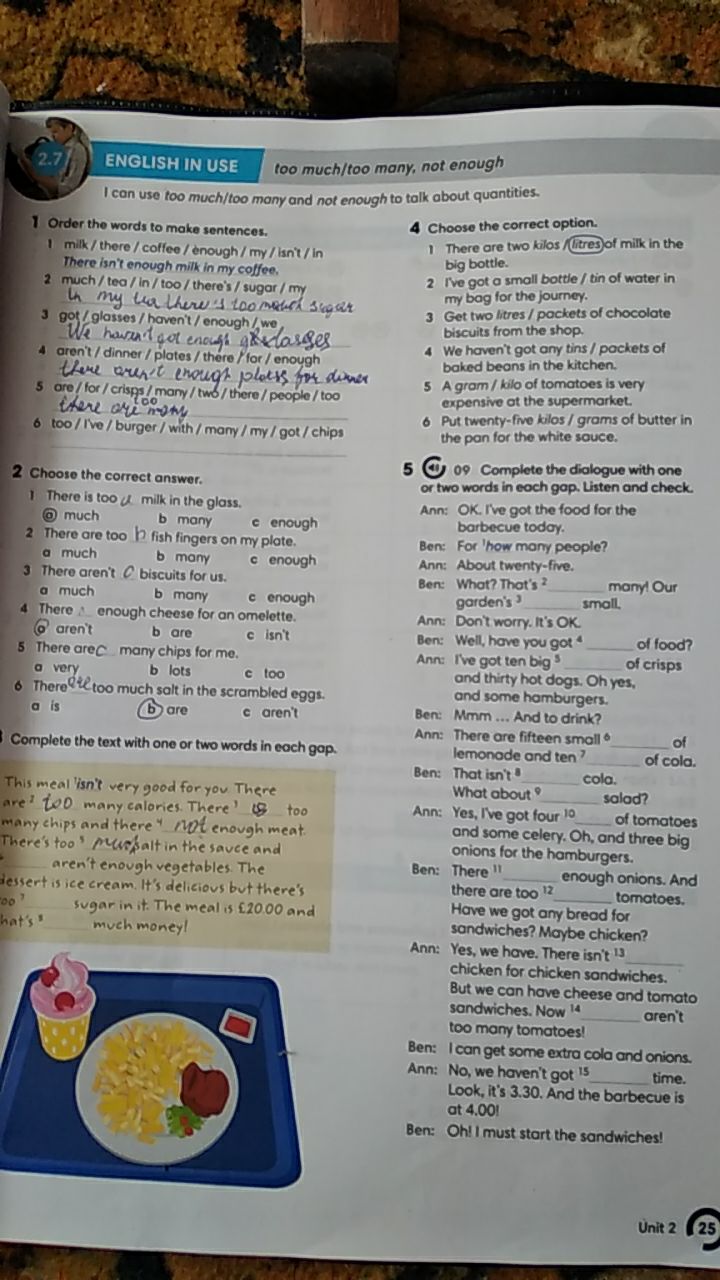 2.7 ENGLISH IN USE too much/too many, not enough
I can use too much/too many and not enough to talk about quantities.
1 Order the words to make sentences.
1 milk / there / coffee / enough / my / isn't / in
There isn't enough milk in my coffee.
2 much / tea / in / too / there's / sugar / my
In my tea there's too much sugar
3 got / glasses / haven't / enough / we
We haven't got enough glasses
4 aren't / dinner / plates / there / for / enough
there aren't enough plates for dinner
5 are / for / crisps / many / two / there / people / too
there are too many
6 too / I've / burger / with / many / my / got / chips
2 Choose the correct answer.
1 There is too a milk in the glass.
a much b many c enough
2 There are too b fish fingers on my plate.
a much b many c enough
3 There aren't c biscuits for us.
a much b many c enough
4 There enough cheese for an omelette.
a aren't b are c isn't
5 There are c many chips for me.
a very b lots c too
6 There are too much salt in the scrambled eggs.
a is b are c aren't
Complete the text with one or two words in each gap.
This meal 1isn't very good for you. There
are 2 too many calories. There 3 is too
many chips and there 4 not enough meat.
There's too 5 much salt in the sauce and
____ aren't enough vegetables. The
dessert is ice cream. It's delicious but there's
oo 7 ____ sugar in it. The meal is £20.00 and
hat's 8 ____ much money!
4 Choose the correct option.
1 There are two kilos / litres of milk in the
big bottle.
2 I've got a small bottle / tin of water in
my bag for the journey.
3 Get two litres / packets of chocolate
biscuits from the shop.
4 We haven't got any tins / packets of
baked beans in the kitchen.
5 A gram / kilo of tomatoes is very
expensive at the supermarket.
6 Put twenty-five kilos / grams of butter in
the pan for the white sauce.
5 09 Complete the dialogue with one
or two words in each gap. Listen and check.
Ann: OK. I've got the food for the
barbecue today.
Ben: For 1how many people?
Ann: About twenty-five.
Ben: What? That's 2 ____ many! Our
garden's 3 ____ small.
Ann: Don't worry. It's OK.
Ben: Well, have you got 4 ____ of food?
Ann: I've got ten big 5 ____ of crisps
and thirty hot dogs. Oh yes,
and some hamburgers.
Ben: Mmm ... And to drink?
Ann: There are fifteen small 6 ____ of
lemonade and ten 7 ____ of cola.
Ben: That isn't 8 ____ cola.
What about 9 ____ salad?
Ann: Yes, I've got four 10 ____ of tomatoes
and some celery. Oh, and three big
onions for the hamburgers.
Ben: There 11 ____ enough onions. And
there are too 12 ____ tomatoes.
Have we got any bread for
sandwiches? Maybe chicken?
Ann: Yes, we have. There isn't 13 ____
chicken for chicken sandwiches.
But we can have cheese and tomato
sandwiches. Now 14 ____ aren't
too many tomatoes!
Ben: I can get some extra cola and onions.
Ann: No, we haven't got 15 ____ time.
Look, it's 3.30. And the barbecue is
at 4.00!
Ben: Oh! I must start the sandwiches!
Unit 2 25